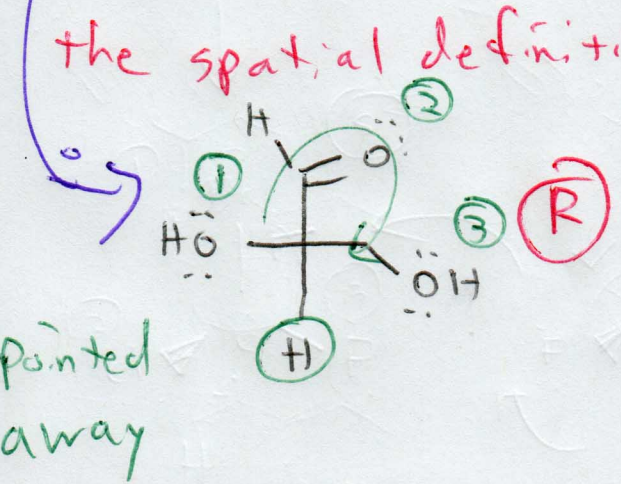 the spatial definit
②
H
O
①
HO
③
R
OH
H
pointed
away